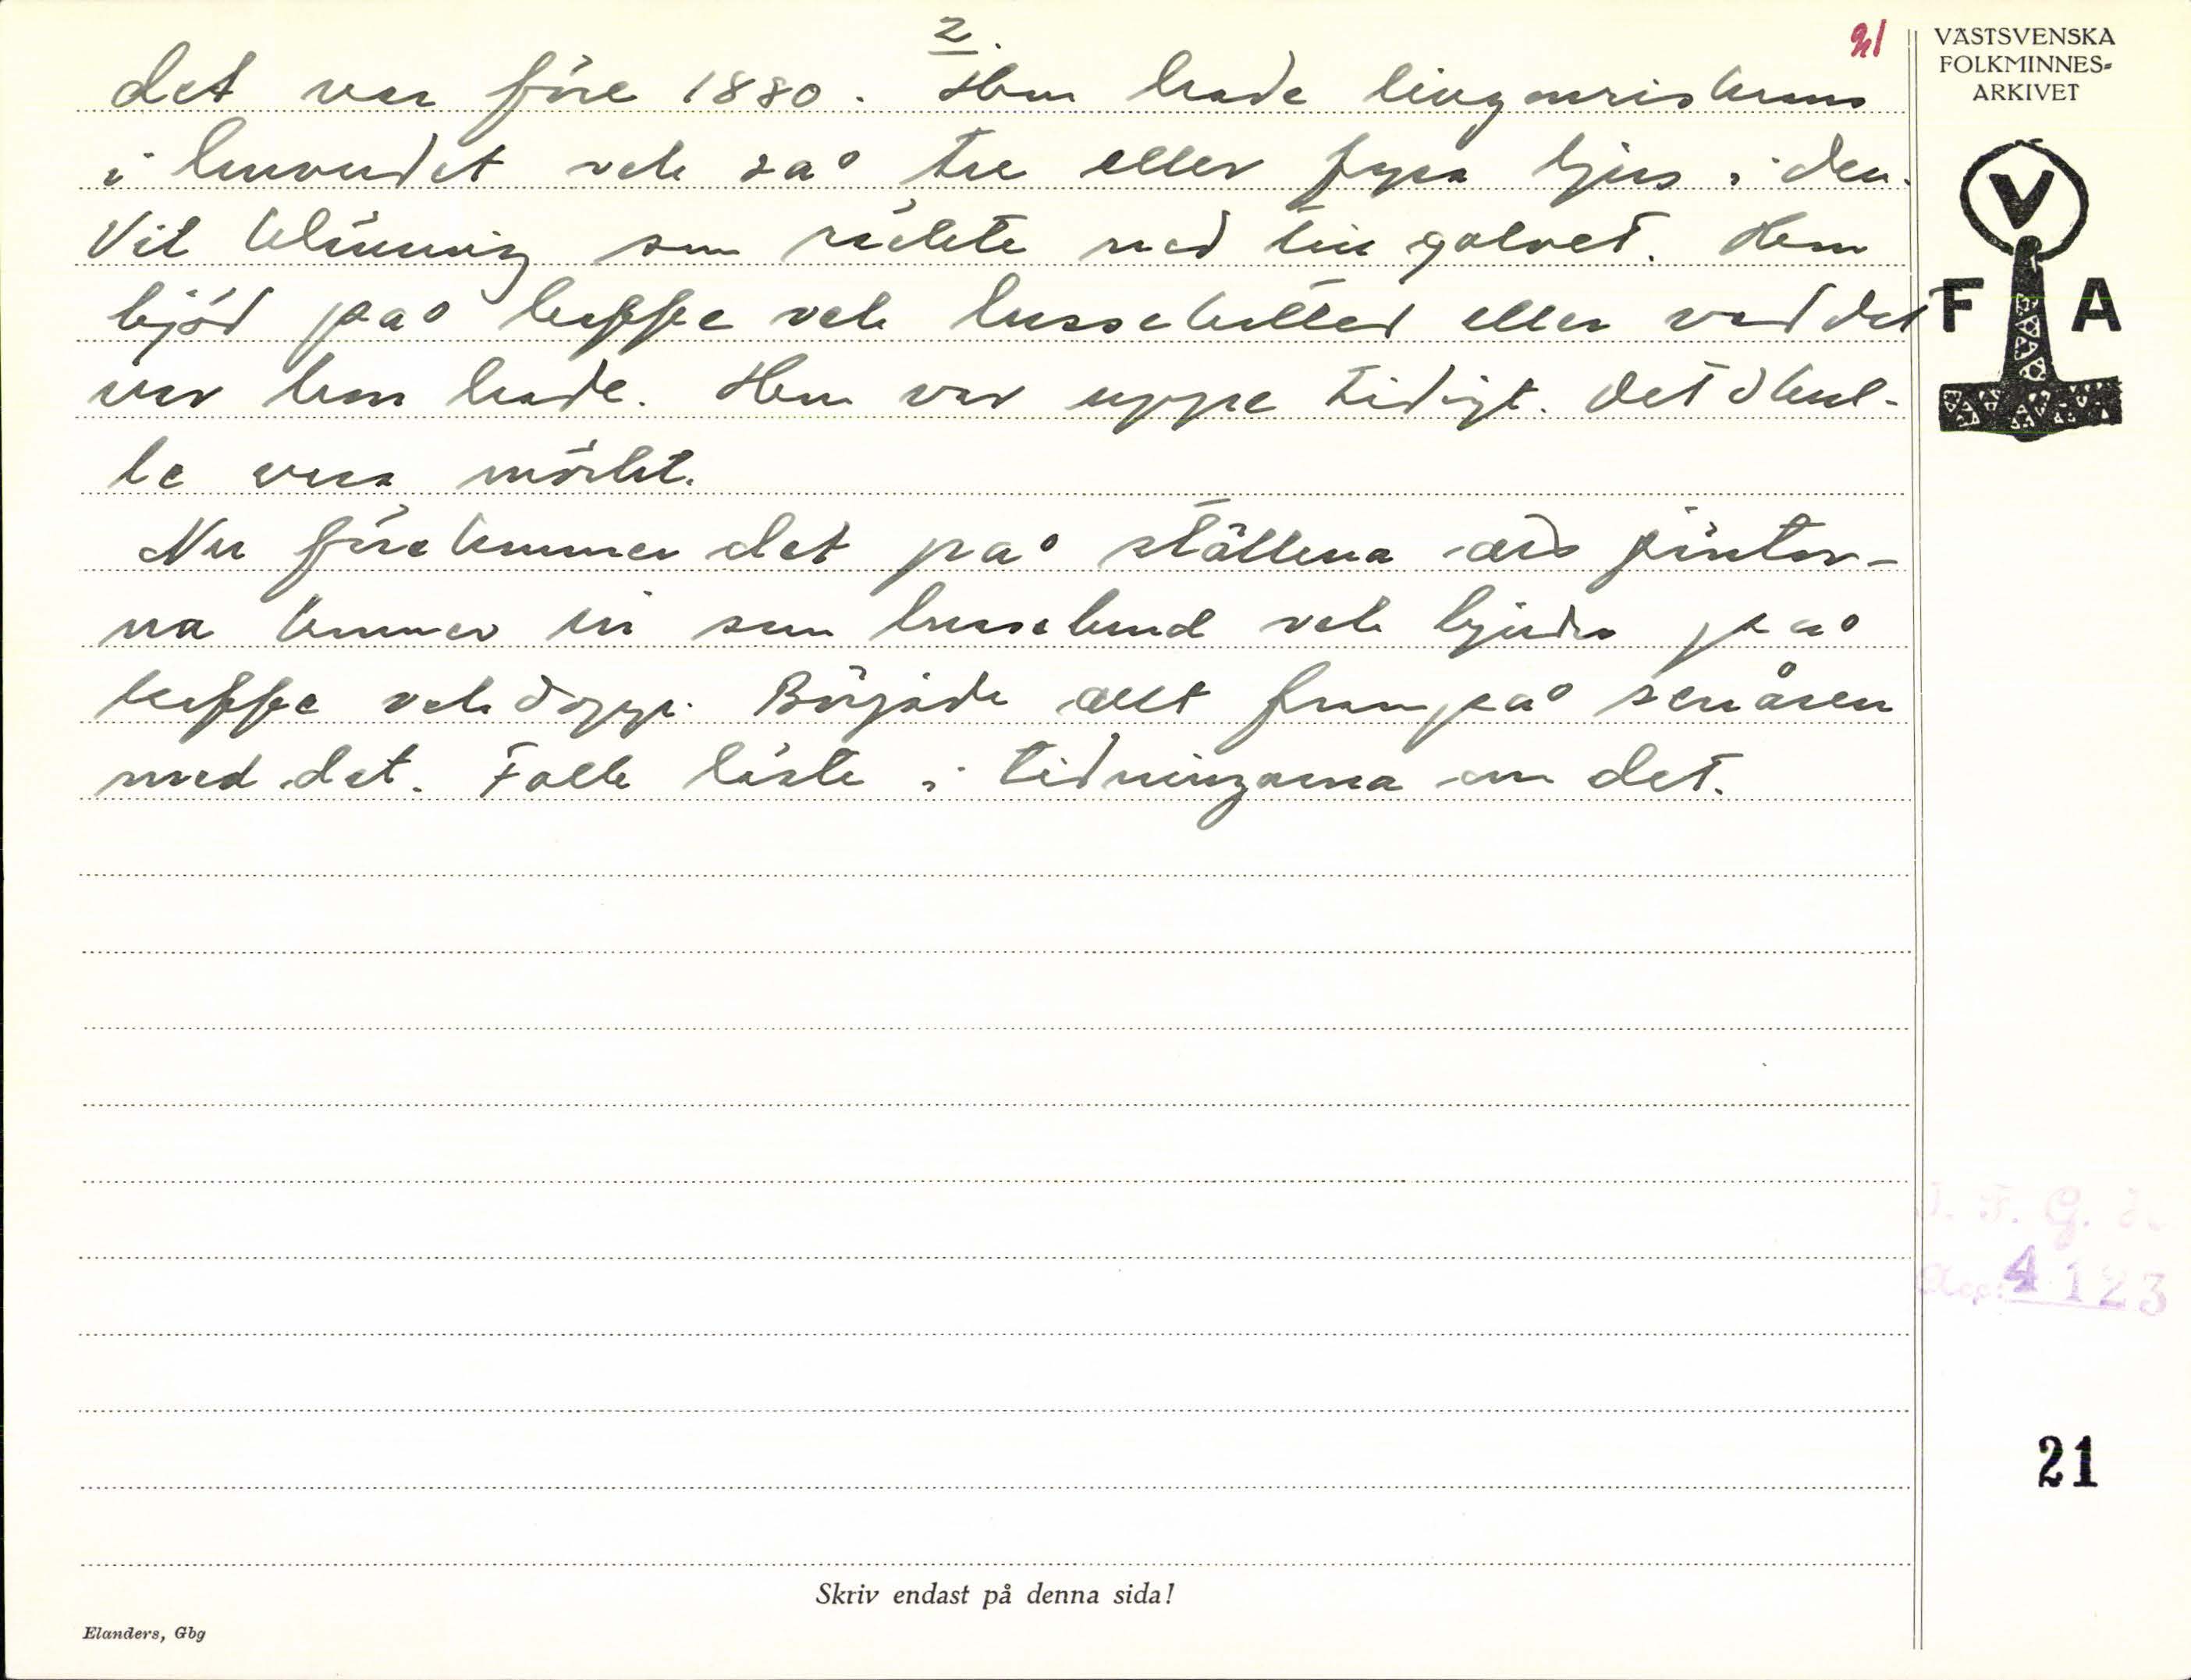 2.
21
det var före 1880. Hon hade lingonriskrans
i huvudet och så tre eller fyra ljus i den.
Vit klänning som räckte ned till golvet. Hon
bjöd på kaffe och lussekatter eller vad det
var hon hade. Hon var uppe tidigt. Det skul-
le vara mörkt.
Nu förekommer det på ställena att jäntor-
na kommer in som lussebrud och bjuder på
kaffe och dopp. Började allt fram på senåren
med det. Folk läste i tidningarna om det.
VÄSTSVENSKA
FOLKMINNES-
ARKIVET
V
F A
4123
21
Skriv endast på denna sida!
Elanders, Gbg